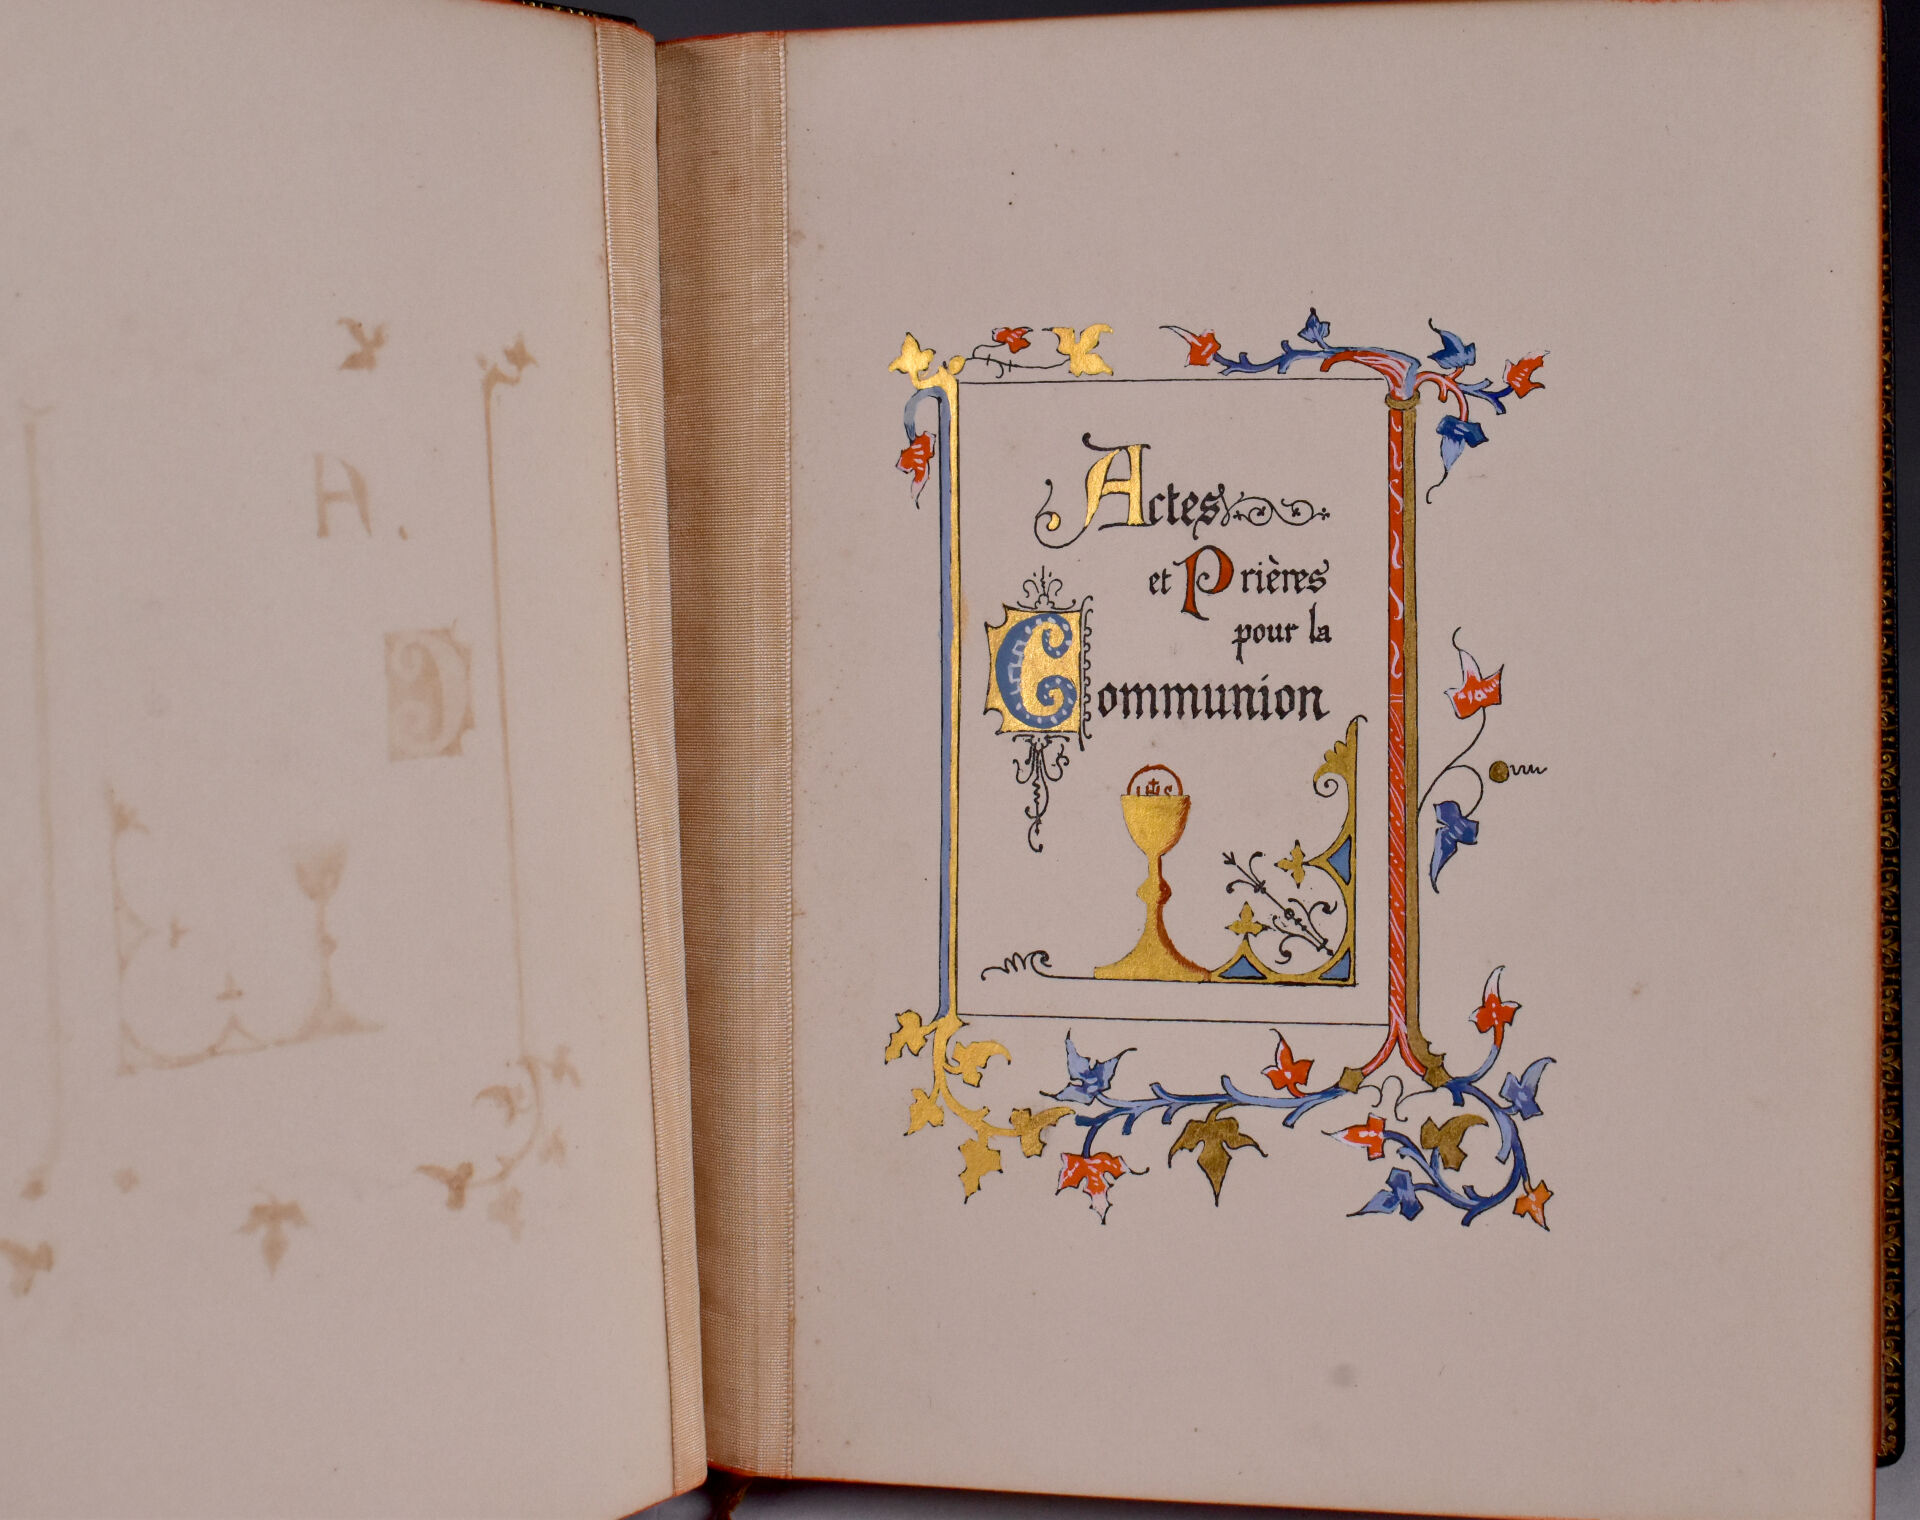 Actes
et Prières
pour la
Communion
IHS